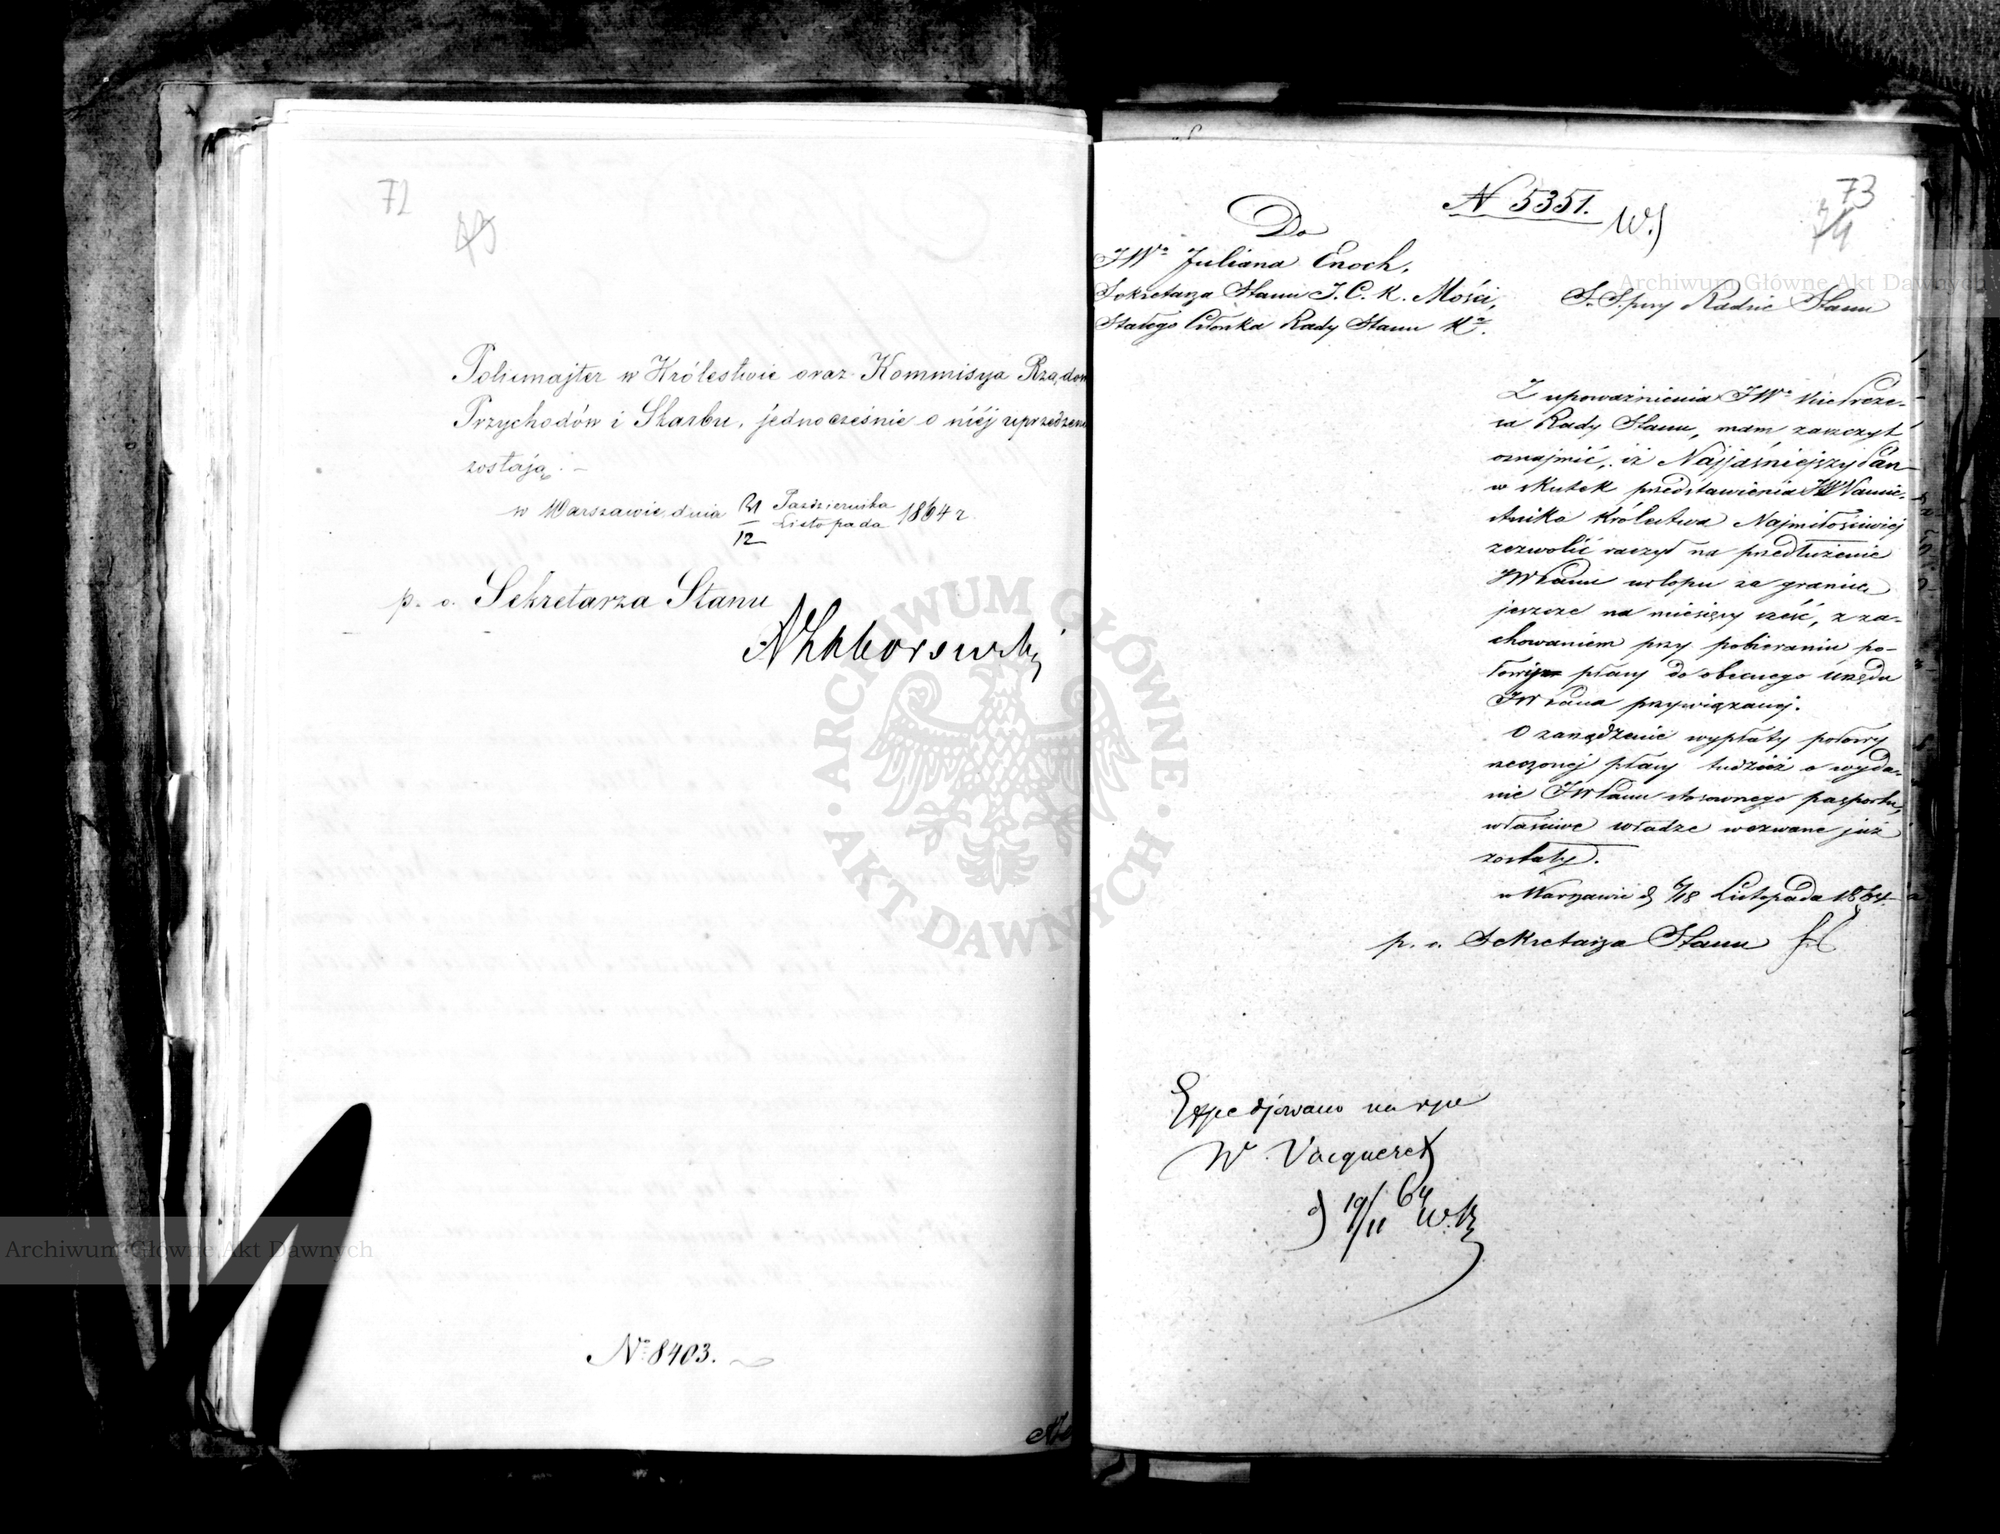 72
Policmajter w Królestwie oraz Kommisya Rządow
Przychodów i Skarbu, jednocześnie o niéj uprzedzene
zostają. –
w Warszawie, dnia 31/12 Października/Listopada 1864 r.
p. o. Sekretarza Stanu
AZaborowski
No 8403.
73
74
N 5351.
W.)
Do
JWo Juliana Enoch,
Sekretarza Stanu J. C. K. Mości,
Stałego Członka Rady Stanu Ka.
S. S. przy Radzie Stanu
Z upoważnienia JWo Vice Preze-
sa Rady Stanu, mam zaszczyt
oznajmić, iż Najjaśniejszy Pan
w skutek przedstawienia JW Namie-
stnika Królestwa Najmiłościwiej
zezwolić raczył na przedłużenie
JW Panu urlopu za granicę
jeszcze na miesięcy sześć, z za-
chowaniem przy pobieraniu po-
łowy płacy do obecnego urzędu
JW Pana przywiązanej.
O zarządzenie wypłaty połowy
rzeczonej płacy tudzież o wyda-
nie JW Panu stosownego paszportu,
właściwe władze wezwane już
zostały.
w Warszawie d. 6/18 Listopada 1864.
p. o. Sekretarza Stanu
Expedjowano na ręce
W. Vacqueret
d) 19/11 64
ARCHIWUM GŁÓWNE AKT DAWNYCH
Archiwum Główne Akt Dawnych
Archiwum Główne Akt Dawnych